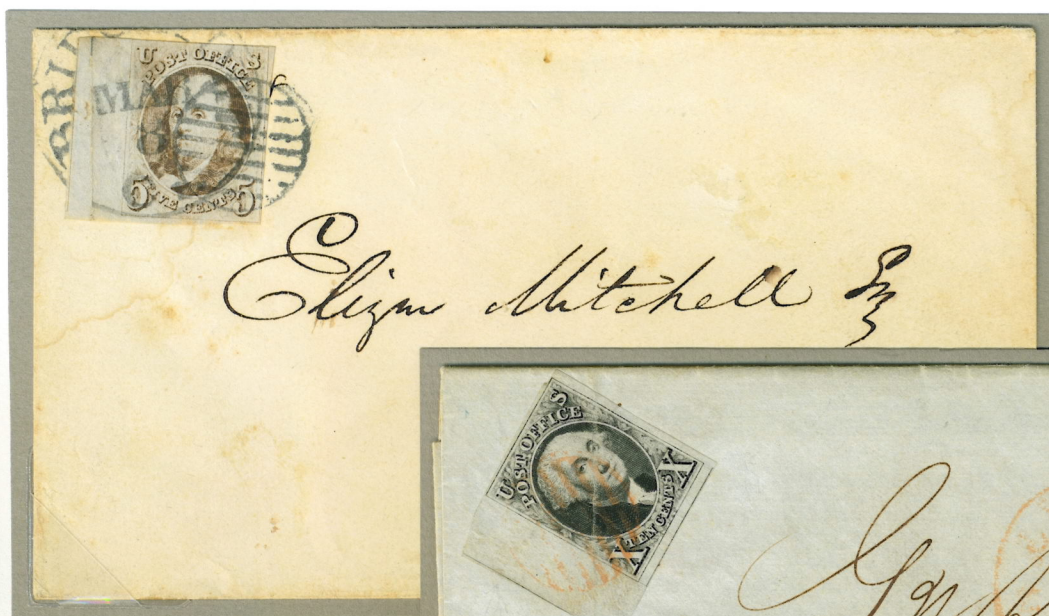 U S
POST OFFICE
MAR
5 FIVE CENTS 5
Elizur Mitchell Esq
U S
POST OFFICE
X TEN CENTS X